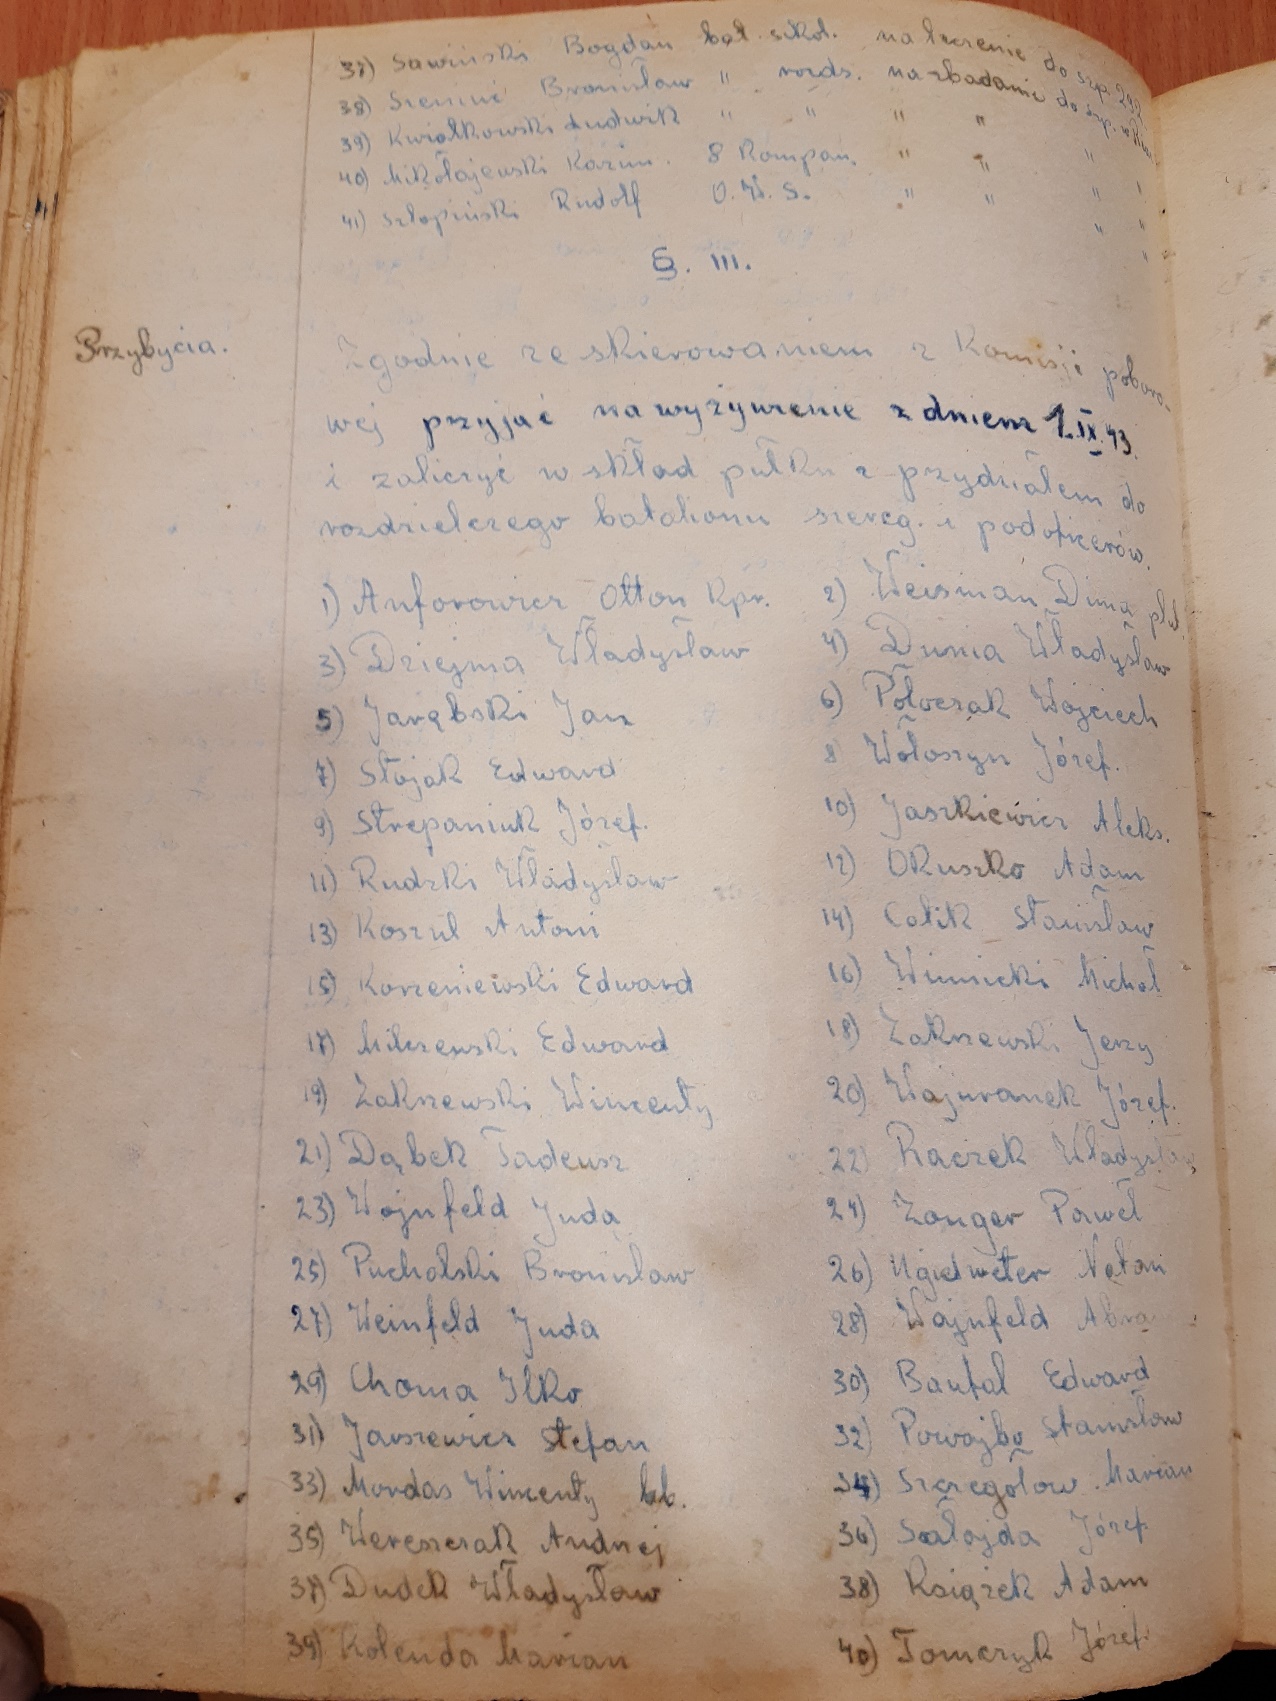 37) Sawiński Bogdan bat. szkol. na leczenie do szp. 292
38) Szeniuć Bronisław " rozdz. na zbadanie do szp. w
39) Kwiatkowski Ludwik " " " " "
40) Mikołajewski Kazim. 8 Kompan. " " " "
41) Szłopiński Rudolf O.W.S. " " " "
§. III.
Przybycia.
Zgodnie ze skierowaniem z Komisji poboro-
wej przyjąć na wyżywienie z dniem 1.IX.43.
i zaliczyć w skład pułku z przydziałem do
rozdzielczego batalionu szereg. i podoficerów.
1) Anforowicz Otton Kpr. 2) Weisman Dima plut.
3) Dziejma Władysław 4) Dunia Władysław
5) Jarębski Jan 6) Połoczak Wojciech
7) Stojak Edward 8 Wołoszyn Józef.
9) Strepaniuk Józef. 10) Jaszkiewicz Aleks.
11) Rudzki Władysław 12) Okuszko Adam
13) Koszul Antoni 14) Calik Stanisław
15) Korzeniewski Edward 16) Winnicki Michał
17) Milczewski Edward 18) Zakrzewski Jerzy
19) Zakrzewski Wincenty 20) Wajuranek Józef.
21) Dąbek Tadeusz 22) Raczek Władysław
23) Wajnfeld Juda 24) Zanger Paweł
25) Pucholski Bronisław 26) Natan
27) Weinfeld Juda 28) Wajnfeld Abra
29) Choma Ilko 30) Baufał Edward
31) Jarszewicz Stefan 32) Powojbo Stanisław
33) Mordas Wincenty bb. 34) Szczegołow. Marian
35) Wereszczak Andrzej 36) Sałajda Józef
37) Dudek Władysław 38) Książek Adam
39) Kolenda Marian 40) Tomczyk Józef.